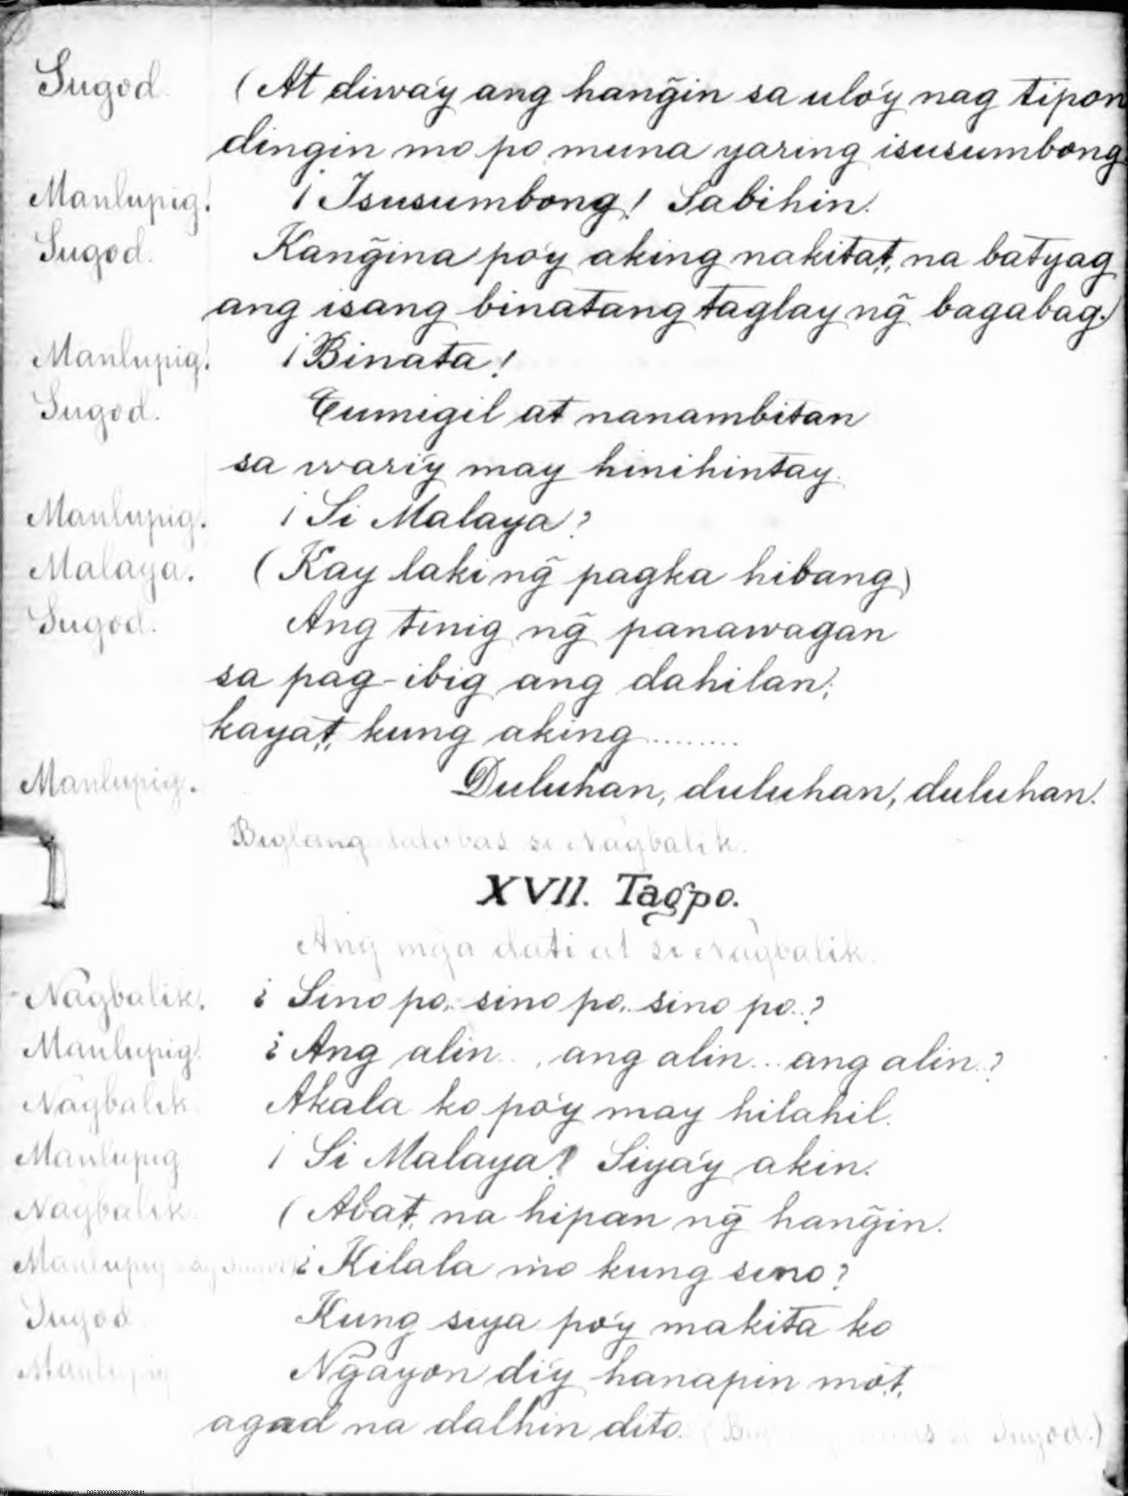 Sugod. (At diwa'y ang hang̃in sa ulo'y nag tipon
dingin mo po muna yaring isusumbong.
Manlupig. ¡Isusumbong! Sabihin.
Sugod. Kang̃ina po'y aking nakitat,, na batyag
ang isang binatang taglay ng̃ bagabag.)
Manlupig. ¡Binata!
Sugod. Tumigil at nanambitan
sa wari'y may hinihintay.
Manlupig. ¡Si Malaya?
Malaya. (Kay laki ng̃ pagka hibang)
Sugod. Ang tinig ng̃ panawagan
sa pag-ibig ang dahilan;
kayat,, kung aking........
Manlupig. Duluhan, duluhan, duluhan.
Biglang lalabas si Nagbalik.
XVII. Tagpo.
Ang mg̃a dati at si Nagbalik.
Nagbalik. ¿Sino po.. sino po.. sino po..?
Manlupig. ¿Ang alin... ang alin... ang alin..?
Nagbalik. Akala ko po'y may hilahil.
Manlupig ¡Si Malaya? Siya'y akin.
Nagbalik. (Abat, na hipan ng̃ hang̃in.
Manlupig kay Sugod ¿Kilala mo kung sino?
Sugod Kung siya po'y makita ko
Manlupig Ng̃ayon di'y hanapin mo't,
agad na dalhin dito. ( si Sugod.)